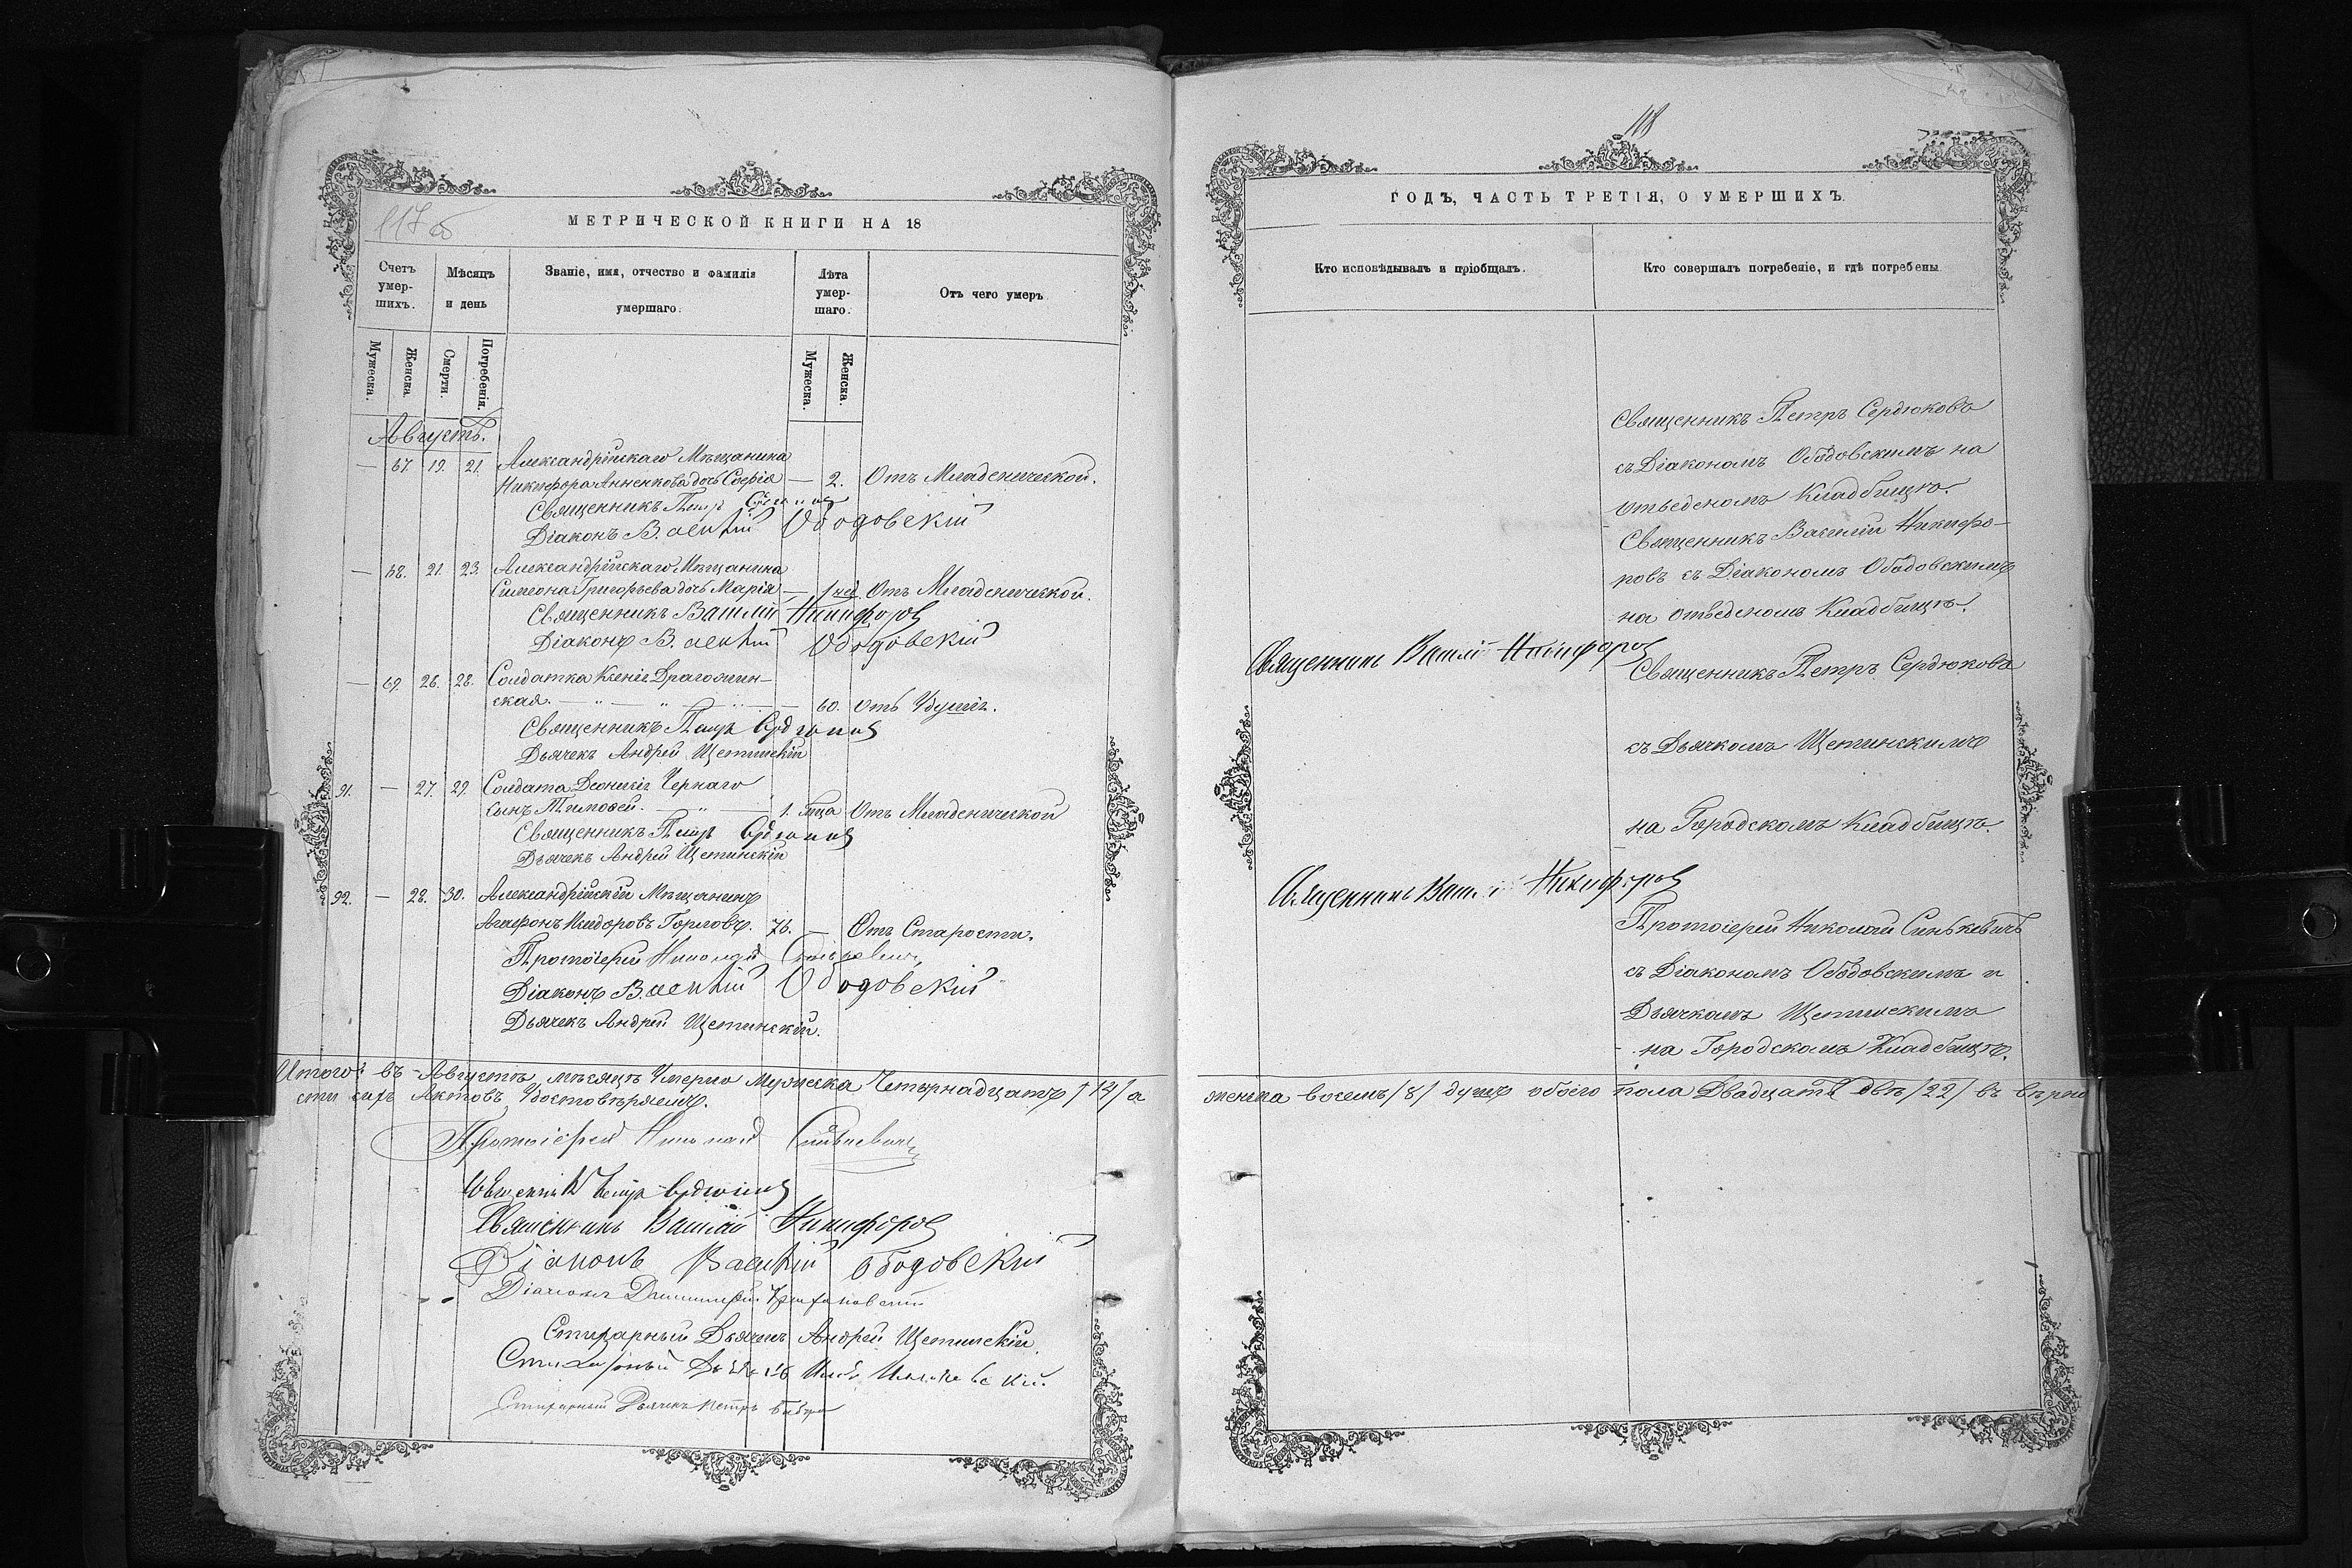 117 об
МЕТРИЧЕСКОЙ КНИГИ НА 18
Счетъ умер-шихъ.
Мѣсяцъ и день
Званіе, имя, отчество и фамилія умершаго.
Лѣта умер-шаго.
Отъ чего умеръ
Мужеска.
Женска.
Смерти.
Погребенія.
Мужеска.
Женска.
Августъ.
— 67. 19. 21. Александрійскаго Мѣщанина
Никифора Анненкова дочь Софія — 2. Отъ Младенческой.
Священникъ Петръ Сердюковъ
Діаконъ Василій Ободовскій
— 68. 21. 23. Александрійскаго Мѣщанина
Симеона Григорьева дочь Марія — 1 нед. Отъ Младенческой.
Священникъ Василій Никифоровъ
Діаконъ Василій Ободовскій
— 69. 26. 28. Солдатка Ксенія Драгомин-
ская. — 60. отъ Удушія.
Священникъ Петръ Сердюковъ
Дьячекъ Андрей Щетинскій
91. — 27. 29. Солдата Діонисія Чернаго
сынъ Тимофей. — 1. Отъ Младенческой
Священникъ Петръ Сердюковъ
Дьячекъ Андрей Щетинскій
92. — 28. 30. Александрійскій Мѣщанинъ
Агафонъ Исидоровъ Горловъ. 76. — Отъ Старости.
Протоіерей Николай Синькевичъ
Діаконъ Василій Ободовскій
Дьячекъ Андрей Щетинскій.
Итого въ Августѣ мѣсяцѣ Умерло мужеска Четырнадцать /14/ а
сти сихъ Актовъ Удостовѣряемъ.
Протоіерей Николай Синькевичъ
Священникъ Петръ Сердюковъ
Священникъ Василій Никифоровъ
Діаконъ Василій Ободовскій
Діаконъ Димитрій
Стихарный Дьячекъ Андрей Щетинскій.
Стихарный Дьячекъ
Стихарный Дьячекъ Петръ
118
ГОДЪ, ЧАСТЬ ТРЕТІЯ, О УМЕРШИХЪ.
Кто исповѣдывалъ и пріобщалъ.
Кто совершалъ погребеніе, и гдѣ погребены
Священникъ Петръ Сердюковъ
съ Діакономъ Ободовскимъ на
отведеномъ Кладбищѣ.
Священникъ Василій Никифо-
ровъ съ Діакономъ Ободовскимъ
на отведеномъ Кладбищѣ.
Священникъ Василій Никифоровъ
Священникъ Петръ Сердюковъ
съ Дьячкомъ Щетинскимъ
на Городскомъ Кладбищѣ.
Священникъ Василій Никифоровъ
Протоіерей Николай Синькевичъ
съ Діакономъ Ободовскимъ и
Дьячкомъ Щетинскимъ
на Городскомъ Кладбищѣ.
женска восемь /8/ душъ обоего пола Двадцать двѣ /22/ въ вѣрно